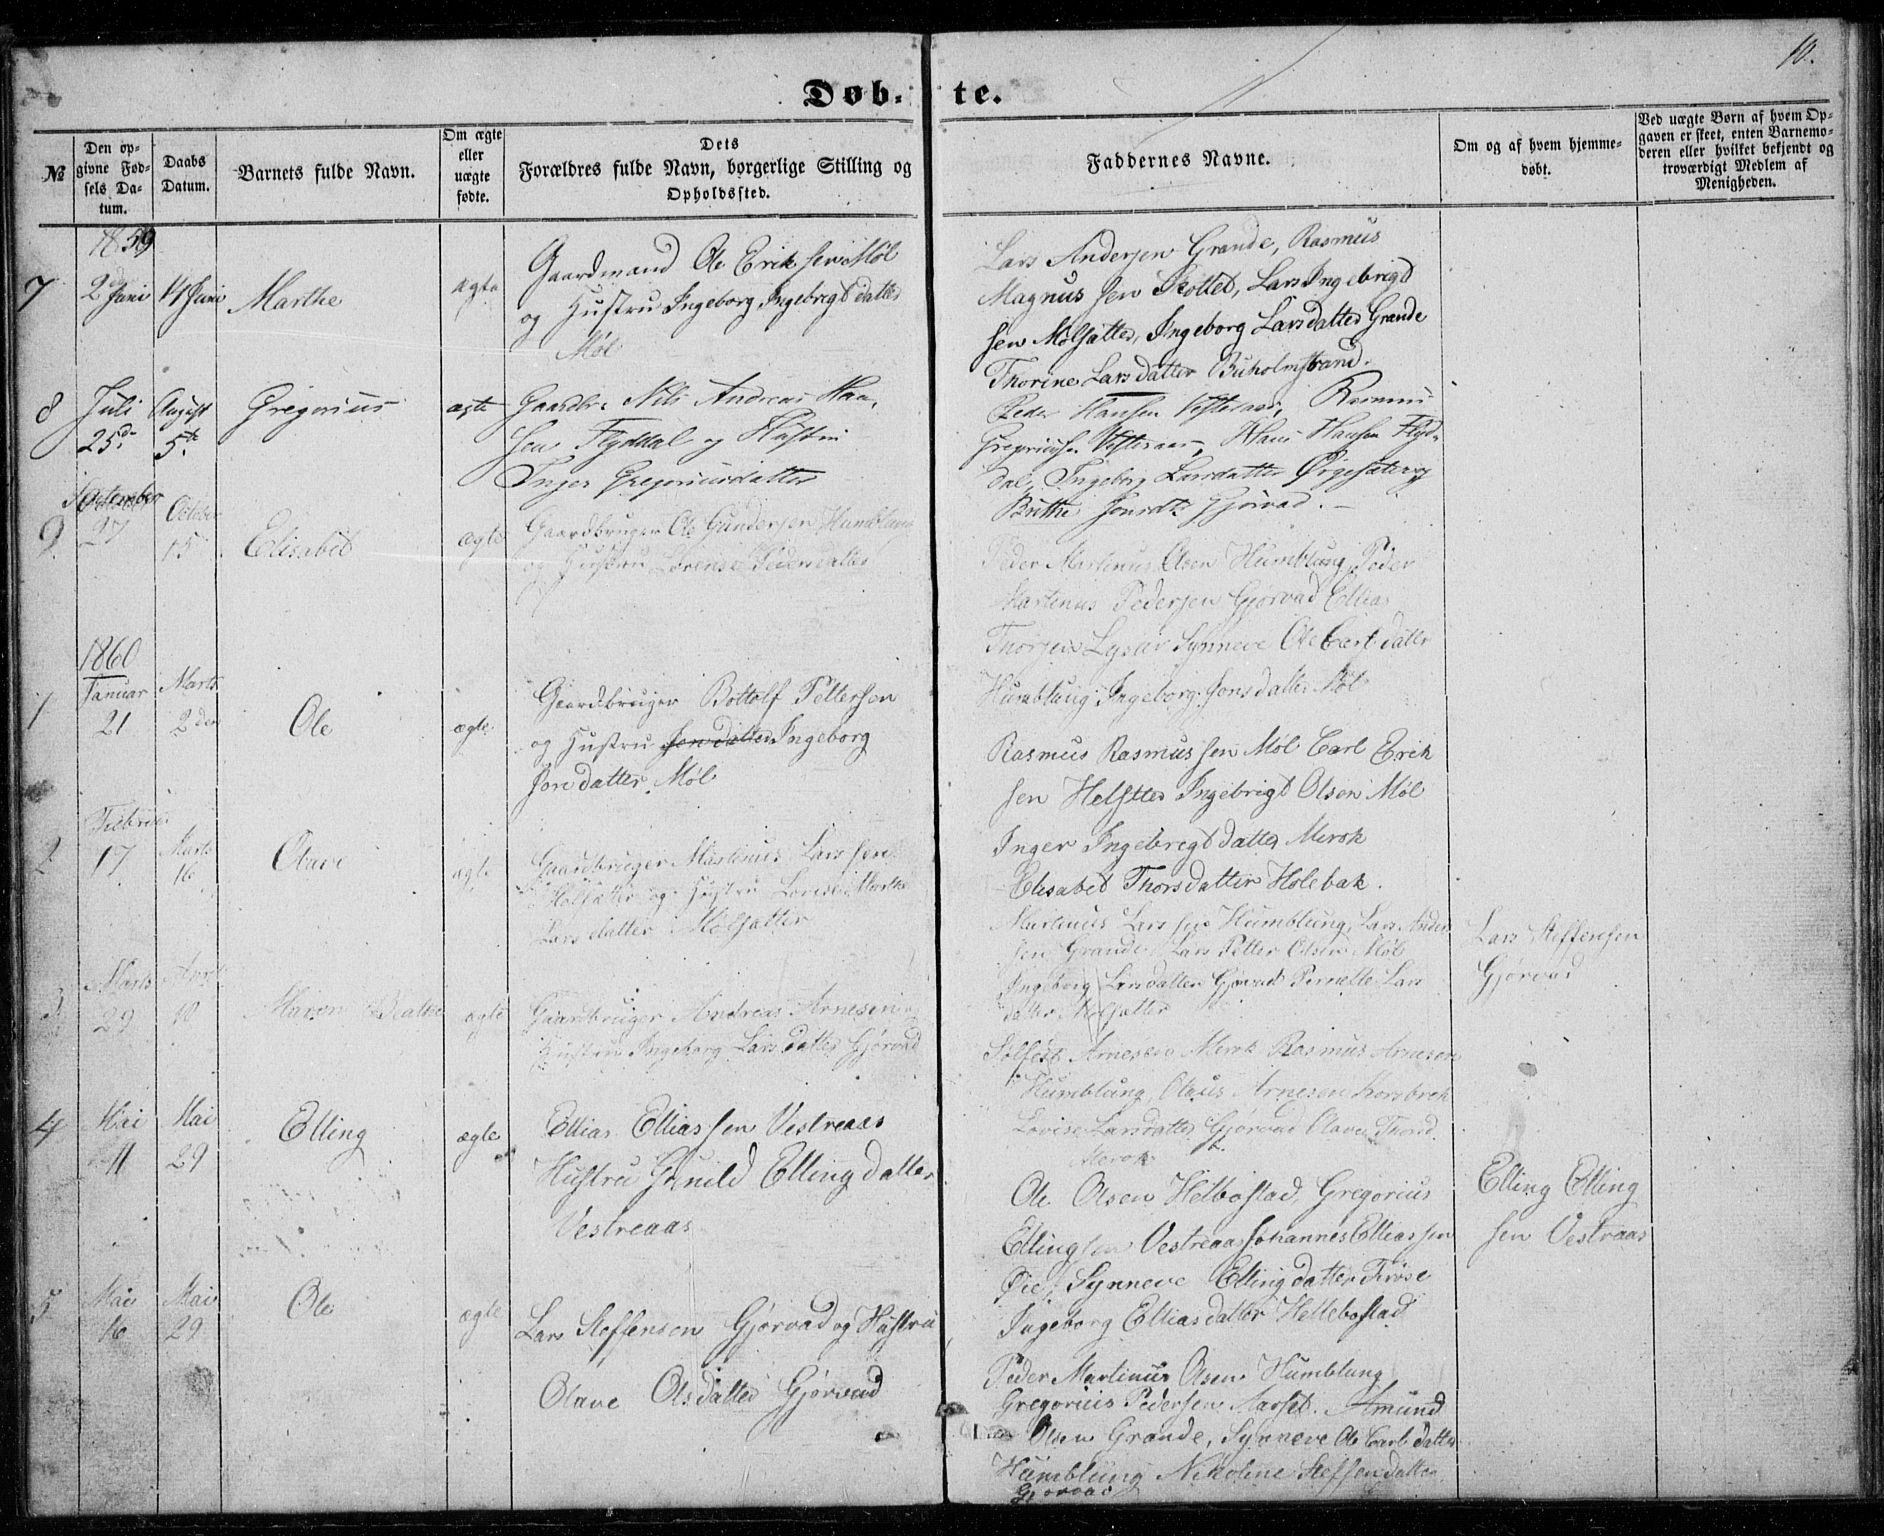 10.
Døb- te.
№
Den op-
givne Fød-
sels Da-
tum.
Daabs
Datum.
Barnets fulde Navn.
Om ægte
eller
uægte
fødte.
Dets
Forældres fulde Navn, borgerlige Stilling og
Opholdssted.
Faddernes Navne.
Om og af hvem hjemme-
døbt.
Ved uægte Børn af hvem Op-
gaven er skeet, enten Barnemo-
deren eller hvilket bekjendt og
troværdigt Medlem af
Menigheden.
1859
7
2 Juni
14 Juni
Marthe
ægte
Gaardmand Ole Eriksen Møl
og Hustru Ingeborg Ingebrigtdatter
Møl
Lars Andersen Grande, Rasmus
Magnussen Skottet, Lars Ingebrigt
sen Mølsætter, Ingeborg Larsdatter Grande
Thorine Larsdatter Buholmstrand.
8
Juli
25de
August
5te
Gregorius
ægte
Gaardbr. Nils Andreas Han,
sen Flyddal og Hustru
Inger Gregoriusdatter
Peder Hansen Vesteraas, Rasmus
Gregoriusen Vesteraas, Klaus Hansen Flyd-
dal, Ingeborg Larsdatter Ørgesæter og
Brithe Jonsdtr Gjørvad. —
9
September
27
October
15
Elisabet
ægte
Gaardbruger Ole Gundersen Humblung
og Hustru Lovense Pedersdatter
Peder Martinus Olsen Humblung, Peder
Martinus Pedersen Gjørvad Ellias
Synneve Ole Carl datter
Humblung Ingeborg Jonsdatter Møl
1860
1
Januar
21
Marts
2den
Ole
ægte
Gaardbruger Bottolf Pettersen
og Hustru Jondatter Ingeborg
Jondatter Møl
Rasmus Rasmussen Møl Carl Erik
sen Helsetter Ingebrigt Olsen Møl
Inger Ingebrigtdatter Merok
Elisabet Thorsdatter Holebak.
2
Februar
17
Marts
16
Olave
ægte
Gaardbruger Martinus Larssen
Mølsætter og Hustru Lovise Marthe
Larsdatter Mølsætter
Martinus Larssen Humblung, Lars Ander
sen Grande Lars Petter Olsen Møl
Ingeborg Larsdatter Gjørvad Pernille Lars
datter Mølsætter
Lars Steffensen
Gjørvad
3
Marts
29
April
10
Maren Beathe
ægte
Gaardbruger Andreas Arnesen og
Hustru Ingeborg Larsdatter Gjørvad
Solfest Arnesen Merok Rasmus Arnesen
Humblung, Olaus Arnesen Korsbrek
Lovise Larsdatter Gjørvad Olave Thord
Merok
4
Mai
11
Mai
29
Elling
ægte
Ellias Elliassen Vestreaas
Hustru Gunild Ellingdatter
Vestreaas
Ole Olsen Helbostad, Gregorius
Ellingsen Vestreaas Johannes Elliassen
Øie, Synneve Ellingdatter
Ingeborg Elliasdatter Hellebostad
Elling Elling
sen Vestraas
5
Mai
16
Mai
29
Ole
ægte
Lars Steffensen Gjørvad og Hustru
Olave Olsdatter Gjørvad
Peder Martinus Olsen Humblung
Gregorius Pedersen Marset. Amund
Olsen Grande, Synneve Ole Carl datter
Humblung Nikoline Steffensdatter
Gjørvad